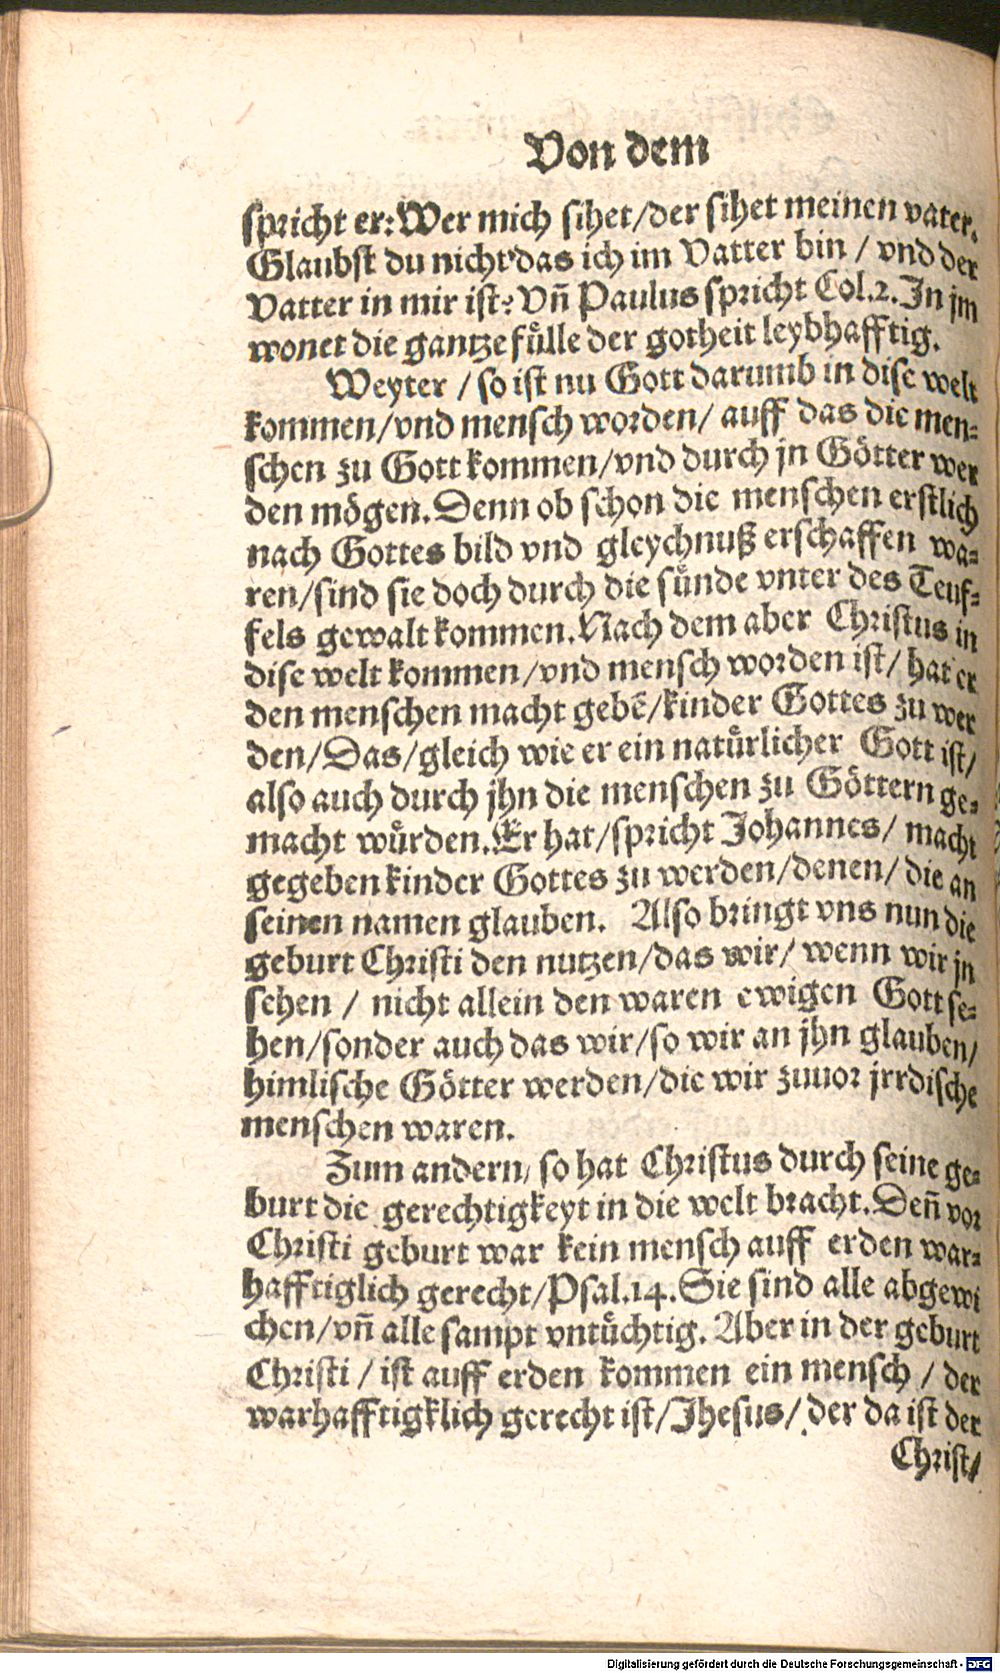 Von dem
spricht er: Wer mich sihet/der sihet meinen vater.
Glaubst du nicht das ich im Vatter bin / vnd der
Vatter in mir ist? Vñ Paulus spricht Col.2. In jm
wonet die gantze fůlle der gotheit leybhafftig.
Weyter / so ist nu Gott darumb in dise welt
kommen/vnd mensch worden/ auff das die men⸗
schen zu Gott kommen/vnd durch jn Götter wer
den mögen. Denn ob schon die menschen erstlich
nach Gottes bild vnd gleychnuß erschaffen wa⸗
ren/sind sie doch durch die sůnde vnter des Teuf⸗
fels gewalt kommen. Nach dem aber Christus in
dise welt kommen/vnd mensch worden ist/ hat er
den menschen macht gebẽ/kinder Gottes zu wer
den/Das/gleich wie er ein natůrlicher Gott ist/
also auch durch jhn die menschen zu Göttern ge⸗
macht wůrden. Er hat/spricht Johannes/ macht
gegeben kinder Gottes zu werden/denen/ die an
seinen namen glauben. Also bringt vns nun die
geburt Christi den nutzen/das wir/ wenn wir jn
sehen / nicht allein den waren ewigen Gott se⸗
hen/sonder auch das wir/so wir an jhn glauben/
himlische Götter werden/die wir zuuor jrrdische
menschen waren.
Zum andern/ so hat Christus durch seine ge⸗
burt die gerechtigkeyt in die welt bracht. Deñ vor
Christi geburt war kein mensch auff erden war⸗
hafftiglich gerecht/Psal.14. Sie sind alle abgewi
chen/vñ alle sampt vntůchtig. Aber in der geburt
Christi / ist auff erden kommen ein mensch / der
warhafftigklich gerecht ist/Jhesus/ der da ist der
Christ/
Digitalisierung gefördert durch die Deutsche Forschungsgemeinschaft - DFG